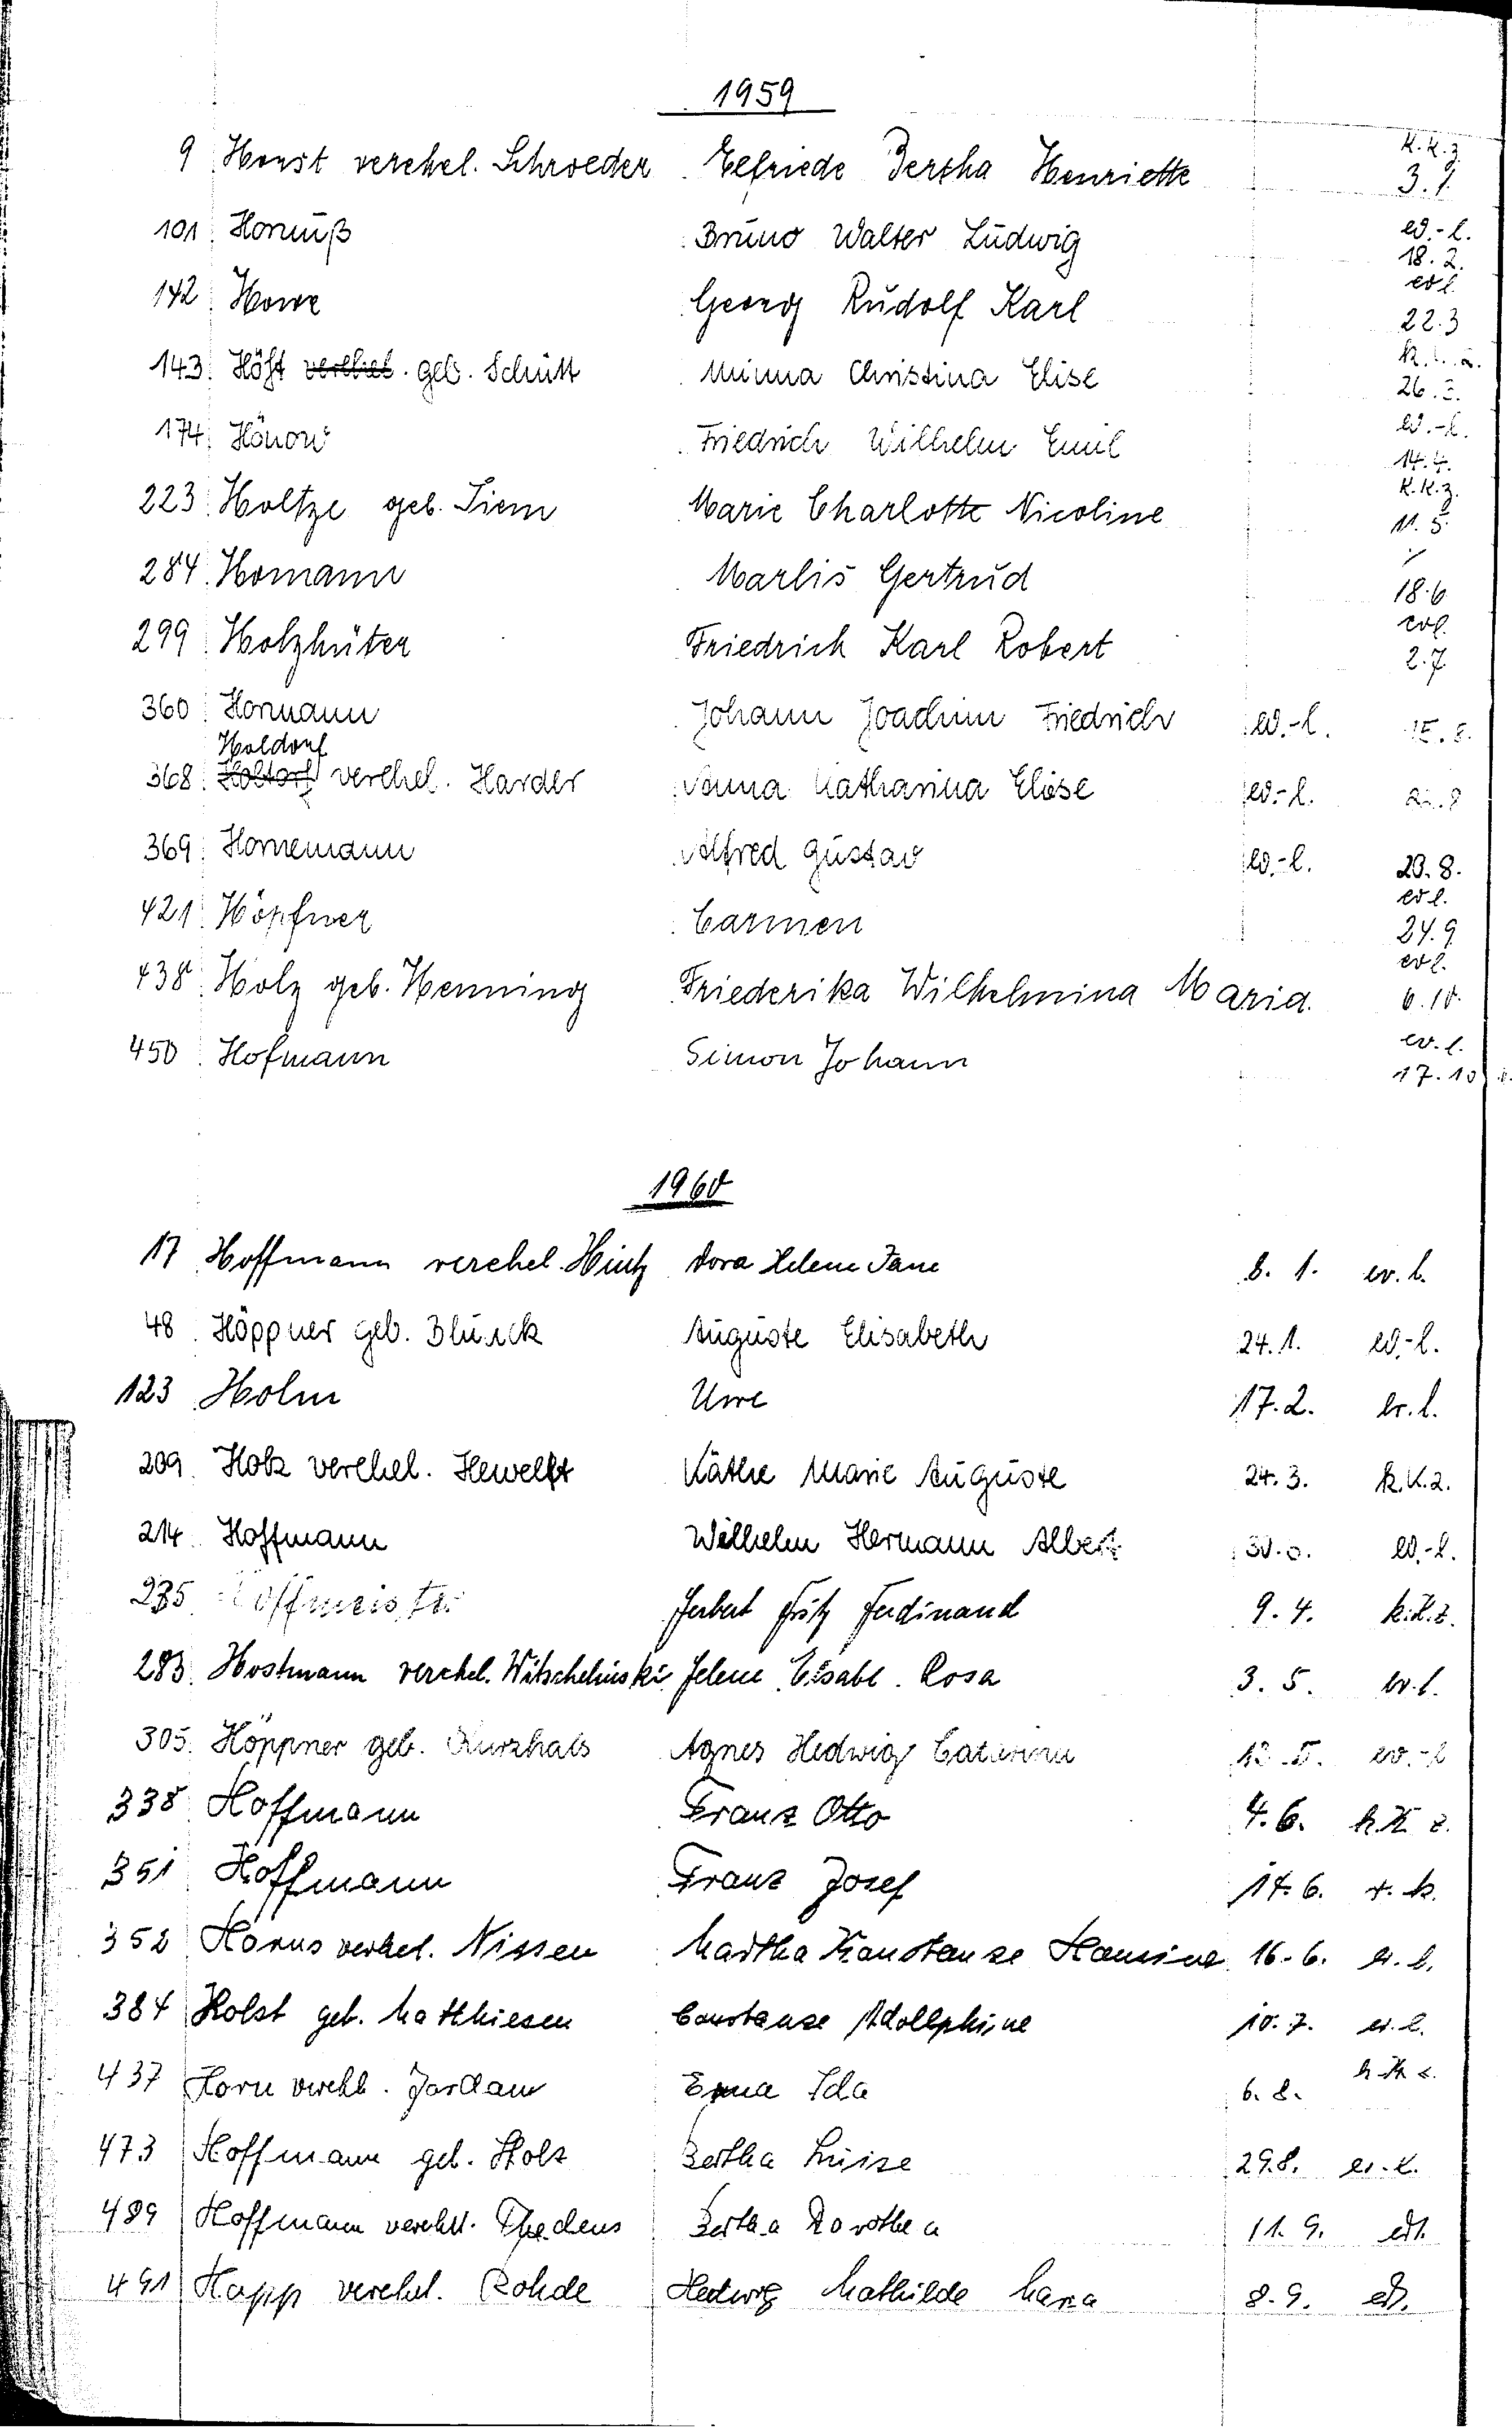 1959
9 Horst verehel. Schroeder Elfriede Bertha Henriette k.k.z. 3.1.
101 Hornuß Bruno Walter Ludwig ev.-l. 18.2.
142 Howe Georg Rudolf Karl evl. 22.3
143 Höft geb. Schütt Minna Christina Elise 26.3.
174 Hönow Friedrich Wilhelm Emil ev.-l. 14.4.
223 Holtze geb. Siem Marie Charlotte Nicoline k.k.z. 11.5.
284 Homann Marlis Gertrud / 18.6
299 Holzhüter Friedrich Karl Robert evl. 2.7
360 Hormann Johann Joachim Friedrich ev.-l.
Holdorf
368 Holtorf verehel. Harder Anna Katharina Elise ev.-l.
369 Hornemann Alfred Gustav ev.-l. 23.8.
421 Höpfner Carmen evl. 24.9
438 Holz geb. Henning Friederika Wilhelmina Maria evl. 6.10.
450 Hofmann Simon Johann ev.l. 17.10
1960
17 Hoffmann verehel. Hintz Dora Helene Jane 8.1. ev.l.
48 Höppner geb. Blunck Auguste Elisabeth 24.1. ev.-l.
123 Holm Uwe 17.2. ev.l.
209 Holz verehel. Hewelt Käthe Marie Auguste 24.3. k.K.z.
214 Hoffmann Wilhelm Hermann Albert ev.-l.
235 Hoffmeister Herbert Fritz Ferdinand 9.4. k.K.z.
283 Hostmann verehel. Helene Elsabe Rosa 3.5. ev.l.
305 Höppner geb. Kurzhals Agnes Hedwig Catarina ev.-l
338 Hoffmann Franz Otto 4.6. k.K.z.
351 Hoffmann Franz Josef 14.6. r.k.
352 Horns verhel. Nissen Martha Konstanze Hansine 16.6. ev.l.
384 Holst geb. Matthiesen Constanze Adolphine 10.7. ev.l.
437 Horn verehl. Jordan Erna Ida 6.8. k.K.z.
473 Hoffmann geb. Stolz Bertha Luise 29.8. ev.l.
489 Hoffmann verehel. Thedens Bertha Dorothea 11.9. evl.
491 Hopp verehel. Rohde Hedwig Mathilde Maria 8.9.